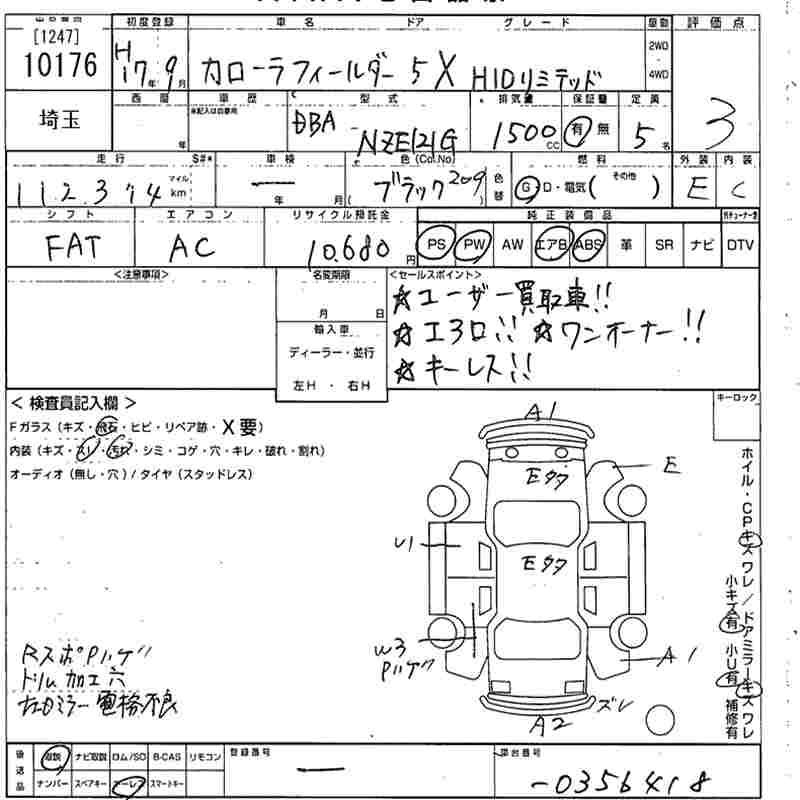 [1247]
10176
初度登録
車名
ドア
グレード
駆動
評価点
H17年9月
カローラフィールダー 5 X HIDリミテッド
2WD
・
4WD
3
埼玉
西暦
年
車歴
※記入は自家用
型式
DBA
NZE121G
排気量
1500cc
保証書
有・無
定員
5名
走行
S#*
112,374
マイル
km
車検
—
年 月
色(Col.No)
ブラック209
色替
燃料
G・D・電気( その他 )
外装
E
内装
C
シフト
FAT
エアコン
AC
リサイクル預託金
10,680円
純正装備品
PS PW AW エアB ABS 革 SR ナビ DTV
<注意事項>
名変期限
月 日
輸入車
ディーラー・並行
左H ・ 右H
<セールスポイント>
☆ユーザー買取車!!
☆エアロ!! ☆ワンオーナー!!
☆キーレス!!
< 検査員記入欄 >
Fガラス (キズ・飛石・ヒビ・リペア跡・X要)
内装 (キズ・スレ・汚れ・シミ・コゲ・穴・キレ・破れ・割れ)
オーディオ (無し・穴) / タイヤ (スタッドレス)
キーロック
A1
Eタタ
E
U1
Eタタ
W3
Pハゲ
A1
A2
ズレ
ホイル・CPキズワレ/ドアミラーキズワレ
小キズ有 小U有 補修有
RスポPハゲ
ドリム加工穴
右ドアミラー電格不良
後送品
取説 ナビ取説 ロム/SD B-CAS リモコン
ナンバー スペアキー キーレス スマートキー
登録番号
—
車台番号
-0356418